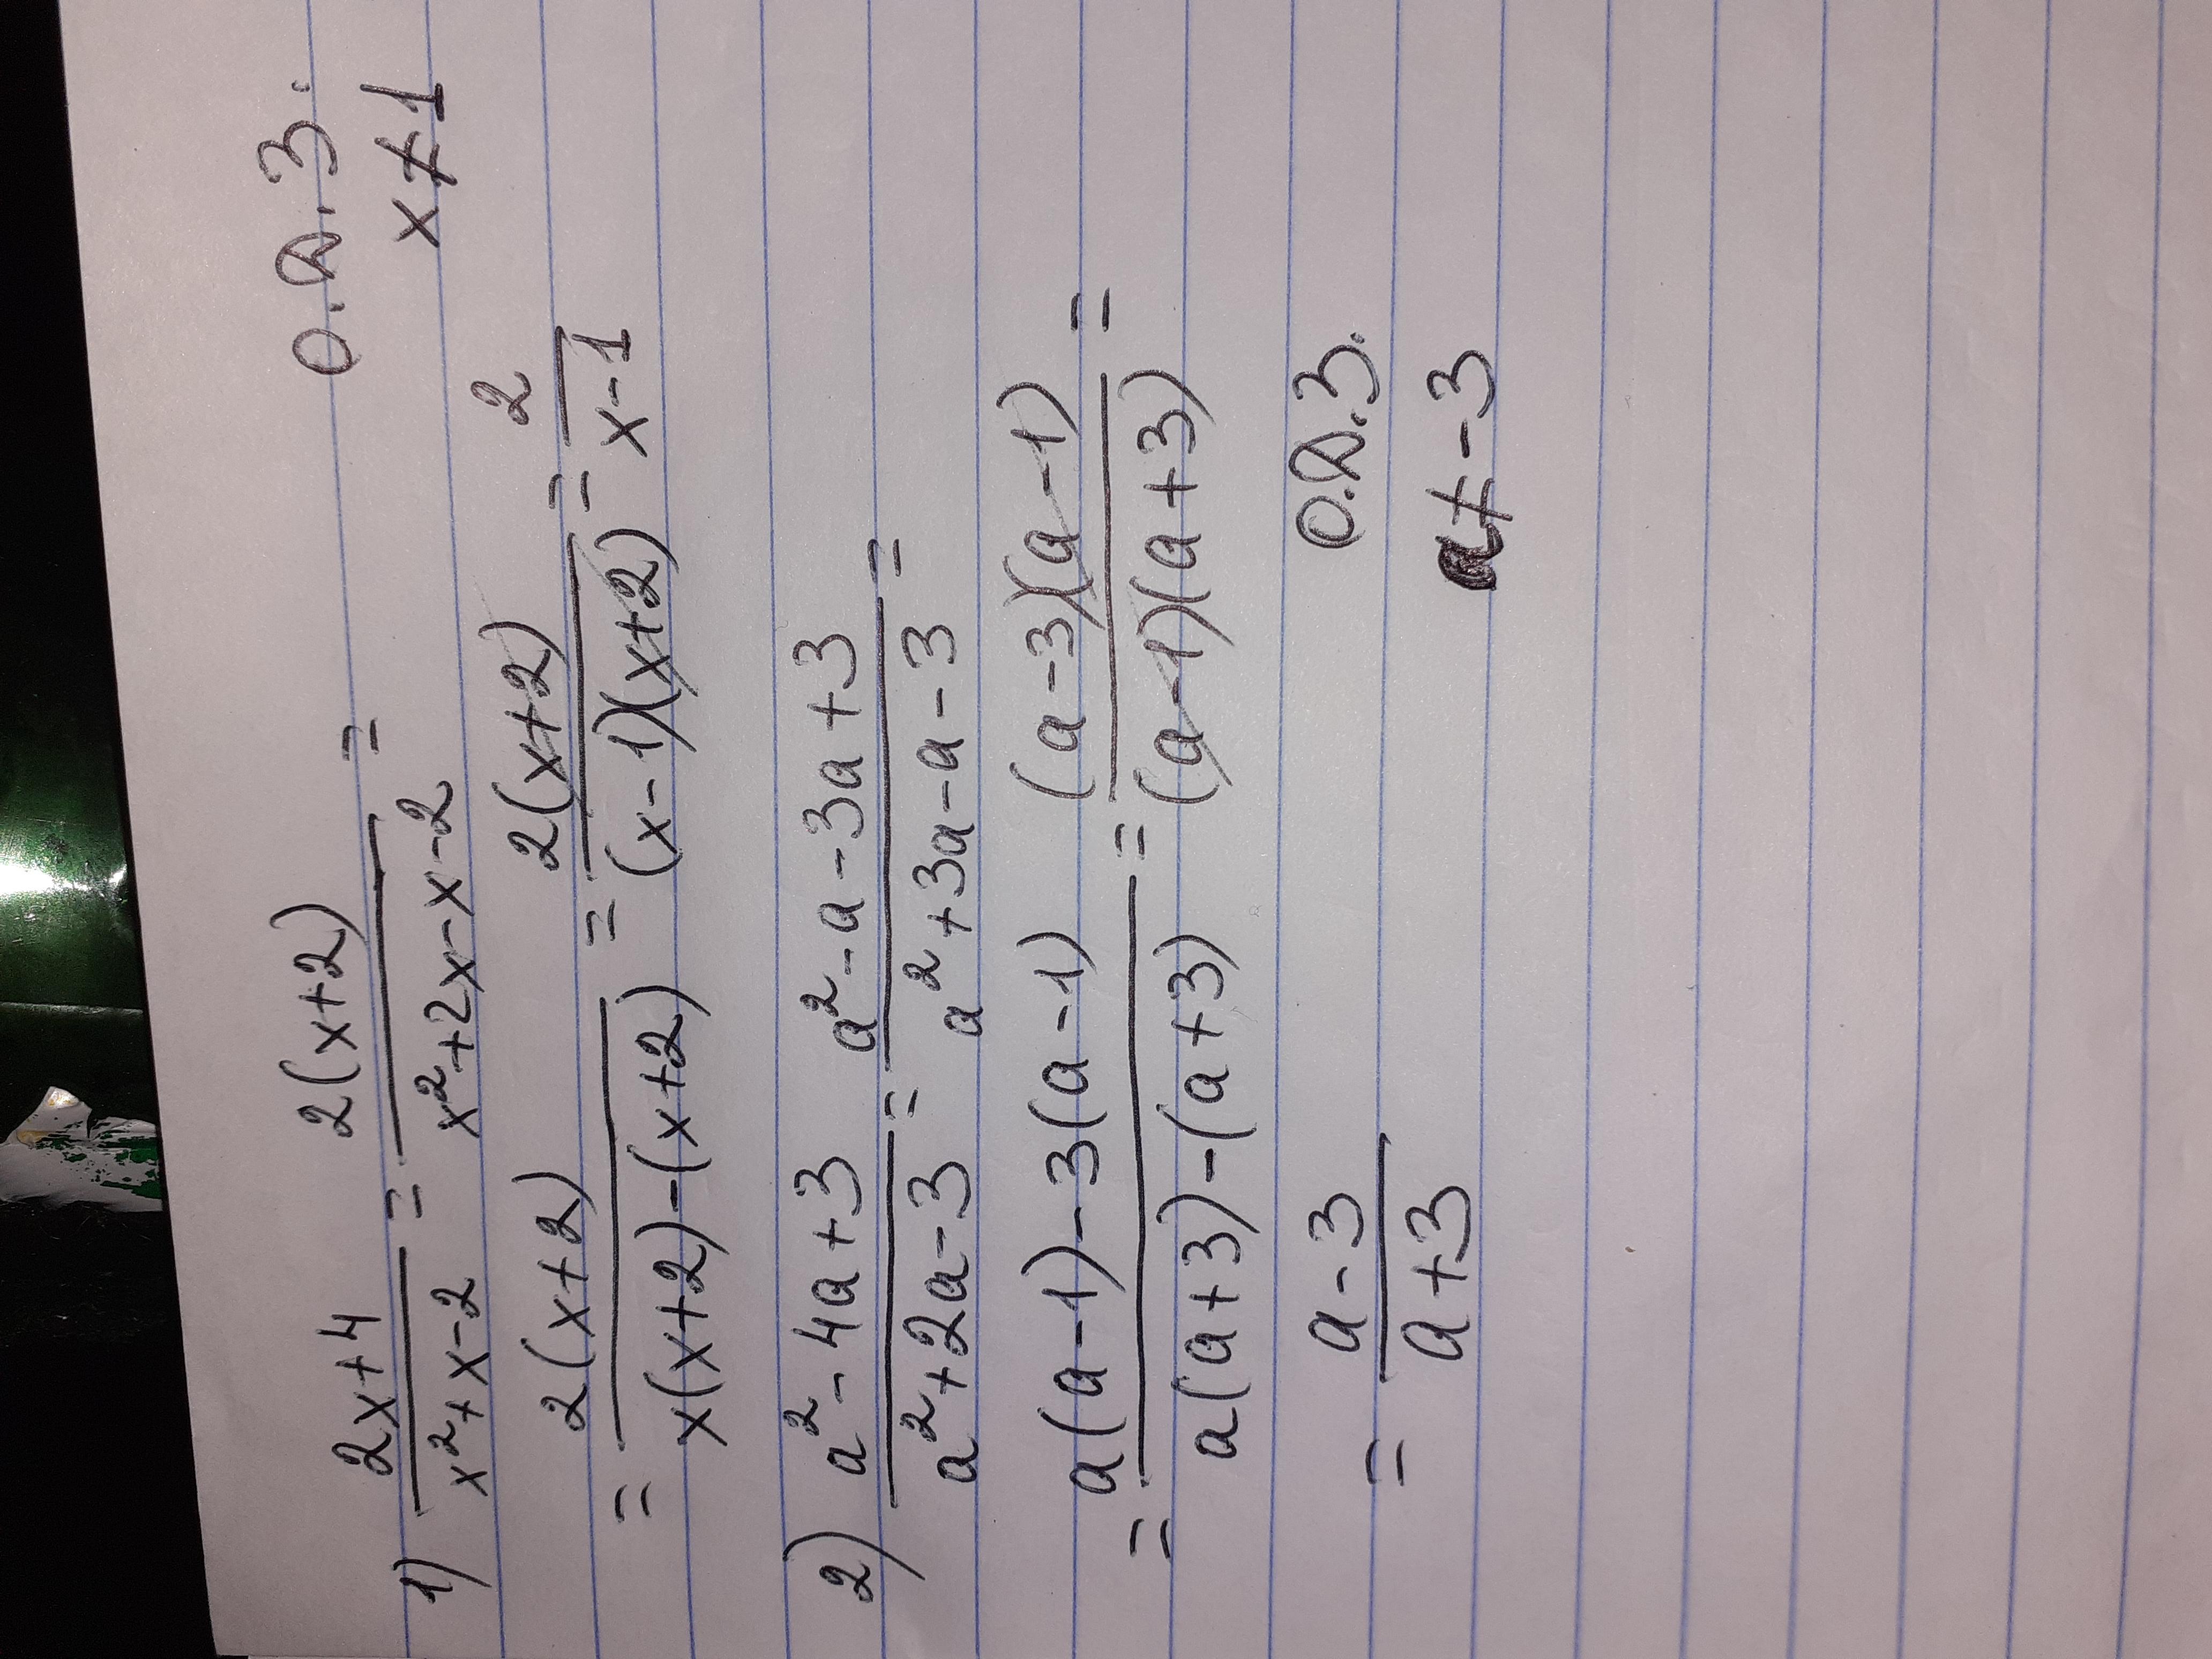 О.Д.З.
1) (2x+4)/(x²+x-2) = 2(x+2)/(x²+2x-x-2) = x≠1
= 2(x+2)/(x(x+2)-(x+2)) = 2(x+2)/((x-1)(x+2)) = 2/(x-1)
2) (a²-4a+3)/(a²+2a-3) = (a²-a-3a+3)/(a²+3a-a-3) =
= (a(a-1)-3(a-1))/(a(a+3)-(a+3)) = ((a-3)(a-1))/((a-1)(a+3)) =
= (a-3)/(a+3) О.Д.З.
a≠-3